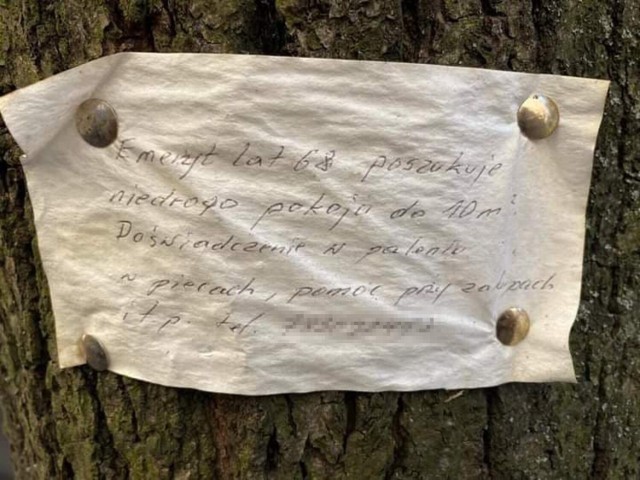 Emeryt lat 68 poszukuje
niedrogo pokoju do 10m²
Doświadczenie w paleniu
w piecach, pomoc przy zakupach
itp. tel.